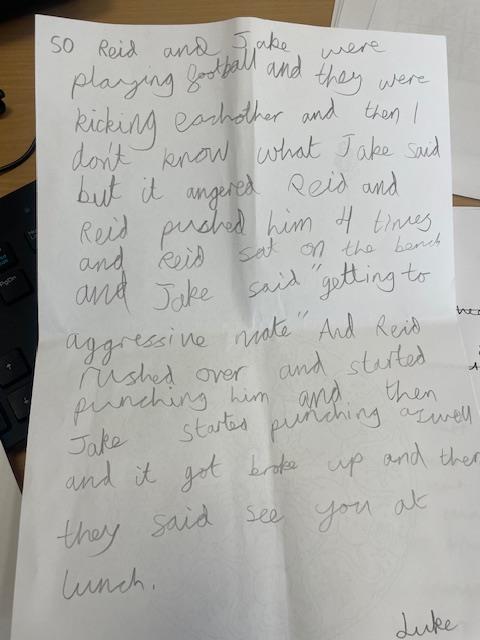 SO Reid and Jake were
playing football and they were
kicking eachother and then I
don't know what Jake said
but it angered Reid and
Reid pushed him 4 times
and Reid sat on the bench
and Jake said "getting to
aggressive mate" And Reid
rushed over and started
punching him and then
Jake started punching aswell
and it got broke up and then
they said see you at
lunch.
Luke